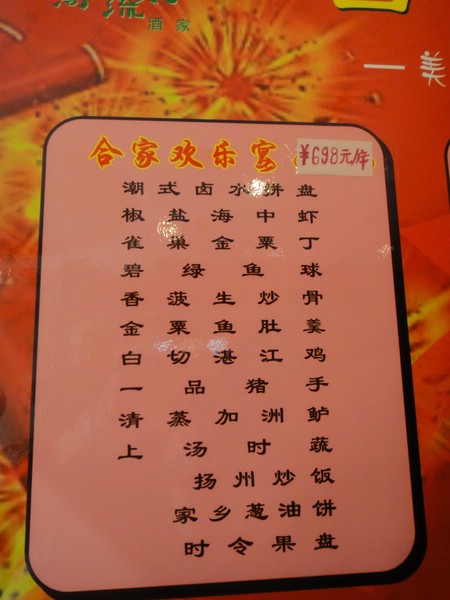 酒家
一美
合家欢乐宴
¥698元/席
潮式卤水拼盘
椒盐海中虾
雀巢金粟丁
碧绿鱼球
香菠生炒骨
金粟鱼肚羹
白切湛江鸡
一品猪手
清蒸加洲鲈
上汤时蔬
扬州炒饭
家乡葱油饼
时令果盘